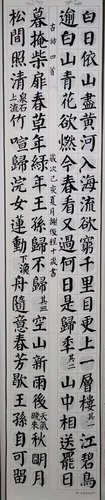 白日依山盡黄河入海流欲窮千里目更上一層樓其一江碧鳥
逾白山青花欲燃今春看又過何日是歸年其二山中相送罷日
古诗四首 歲次己亥夏月
暮掩柴扉春草年年緑王孫歸不歸其三空山新雨後天氣晚來秋明月
松間照清泉石上流竹喧歸浣女蓮動下漁舟隨意春芳歇王孫自可留